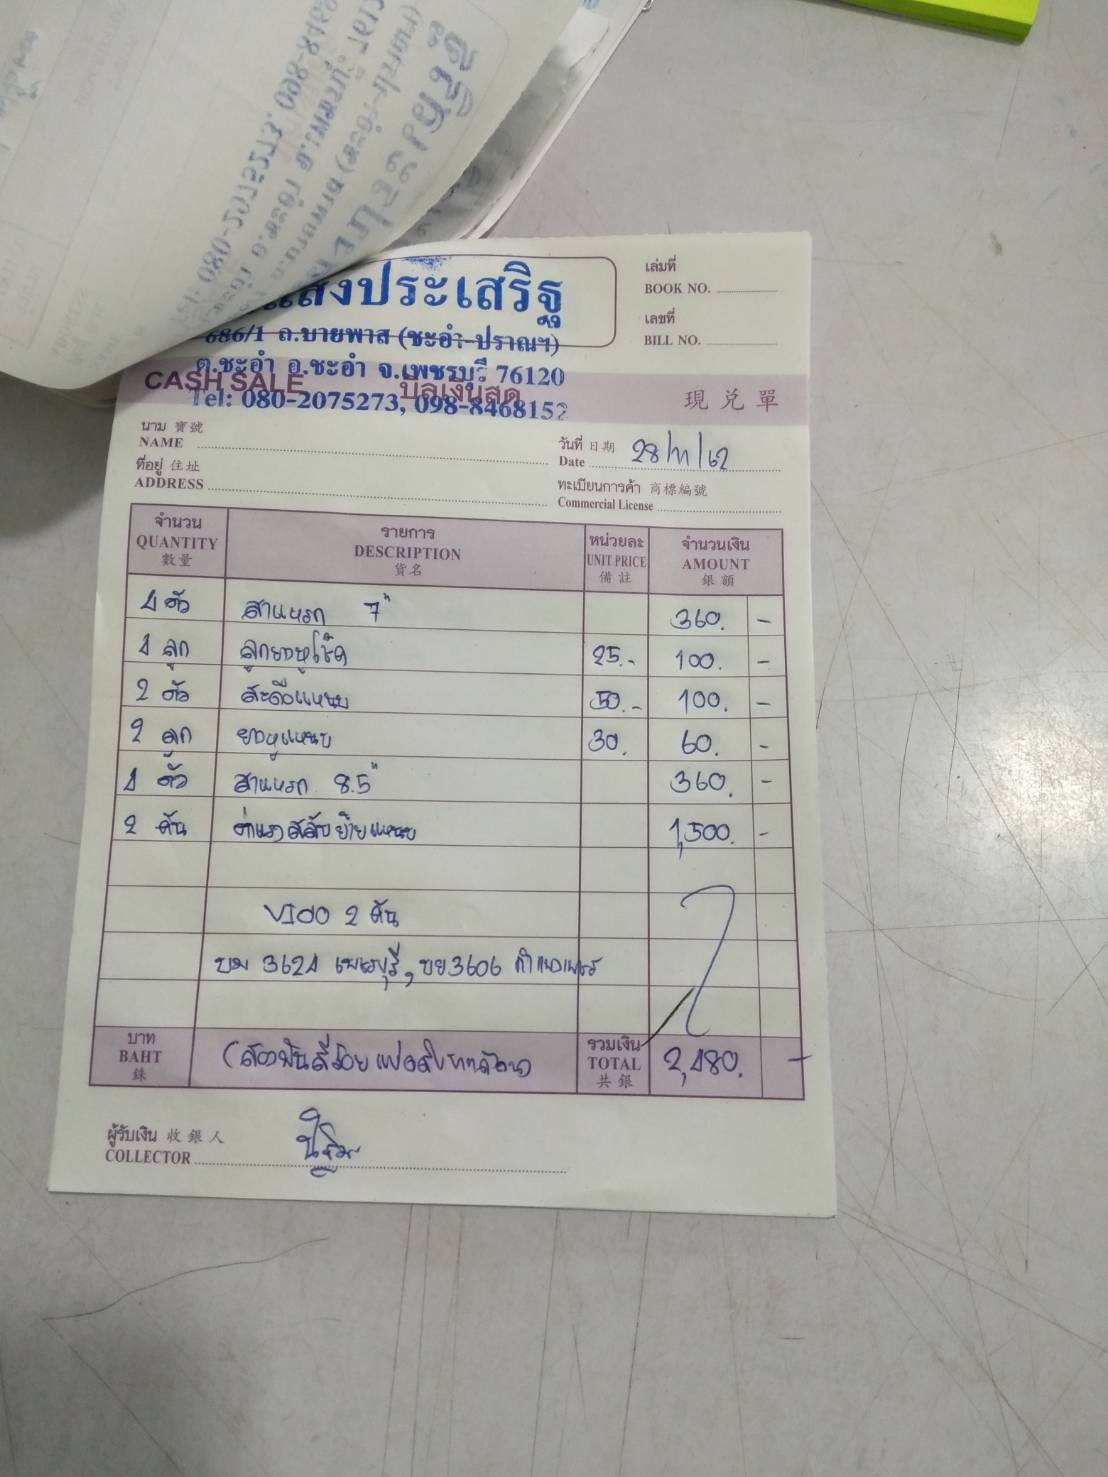 แสงประเสริฐ
686/1 ถ.บายพาส (ชะอำ-ปราณฯ)
ต.ชะอำ อ.ชะอำ จ.เพชรบุรี 76120
Tel: 080-2075273, 098-8468152
เล่มที่
BOOK NO.
เลขที่
BILL NO.
CASH SALE บิลเงินสด 現兌單
นาม 寶號
NAME
วันที่ 日期 28/11/62
Date
ที่อยู่ 住址
ADDRESS
ทะเบียนการค้า 商標編號
Commercial License
จำนวน รายการ หน่วยละ จำนวนเงิน
QUANTITY DESCRIPTION UNIT PRICE AMOUNT
數量 貨名 備註 銀額
4 ตัว สาแหรก 7" 360. -
4 ลูก ลูกยางหูโช๊ค 25.- 100. -
2 ตัว สะดือแหนบ 50.- 100. -
2 ลูก ยางหูแหนบ 30. 60. -
4 ตัว สาแหรก 8.5" 360. -
2 คัน ค่าแรงสลับย้ายแหนบ 1,500. -
VIGO 2 คัน
บม 3624 เพชรบุรี, บย 3606 กำแพงเพชร
บาท
BAHT
銖
(สองพันสี่ร้อยแปดสิบบาทถ้วน)
รวมเงิน
TOTAL
共銀
2,480. -
ผู้รับเงิน 收銀人
COLLECTOR